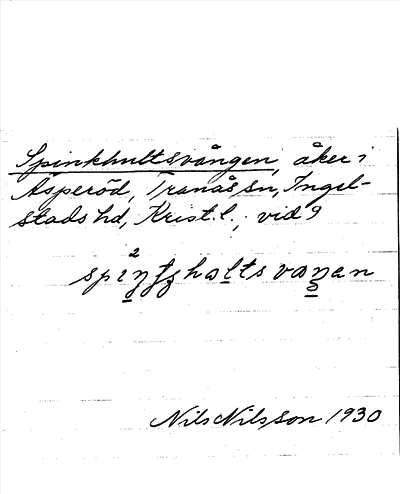 Spinkhultsvången, åker i
Äsperöd, Tranås sn, Ingel-
stads hd, Krist. l., vid 9
Nils Nilsson 1930